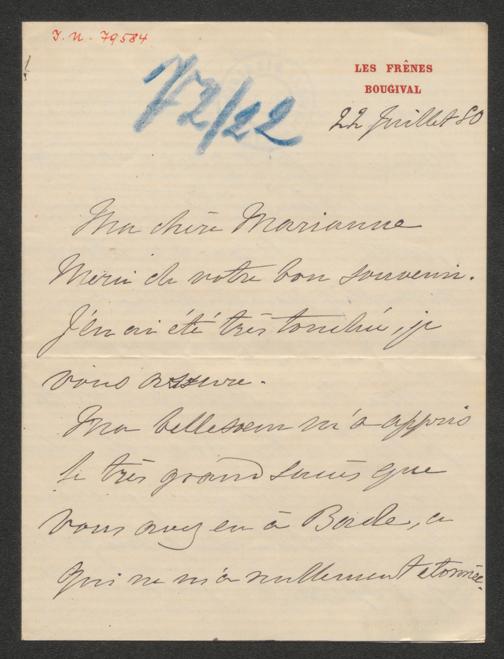 I. N. 79584
72/22
LES FRÊNES
BOUGIVAL
22 Juillet 80
Ma chère Marianne
Merci de votre bon souvenir.
J'en ai été très touchée, je
vous assure.
Ma belle soeur m'a appris
le très grand succès que
vous avez eu à Basle, ce
qui ne m'a nullement étonnée.